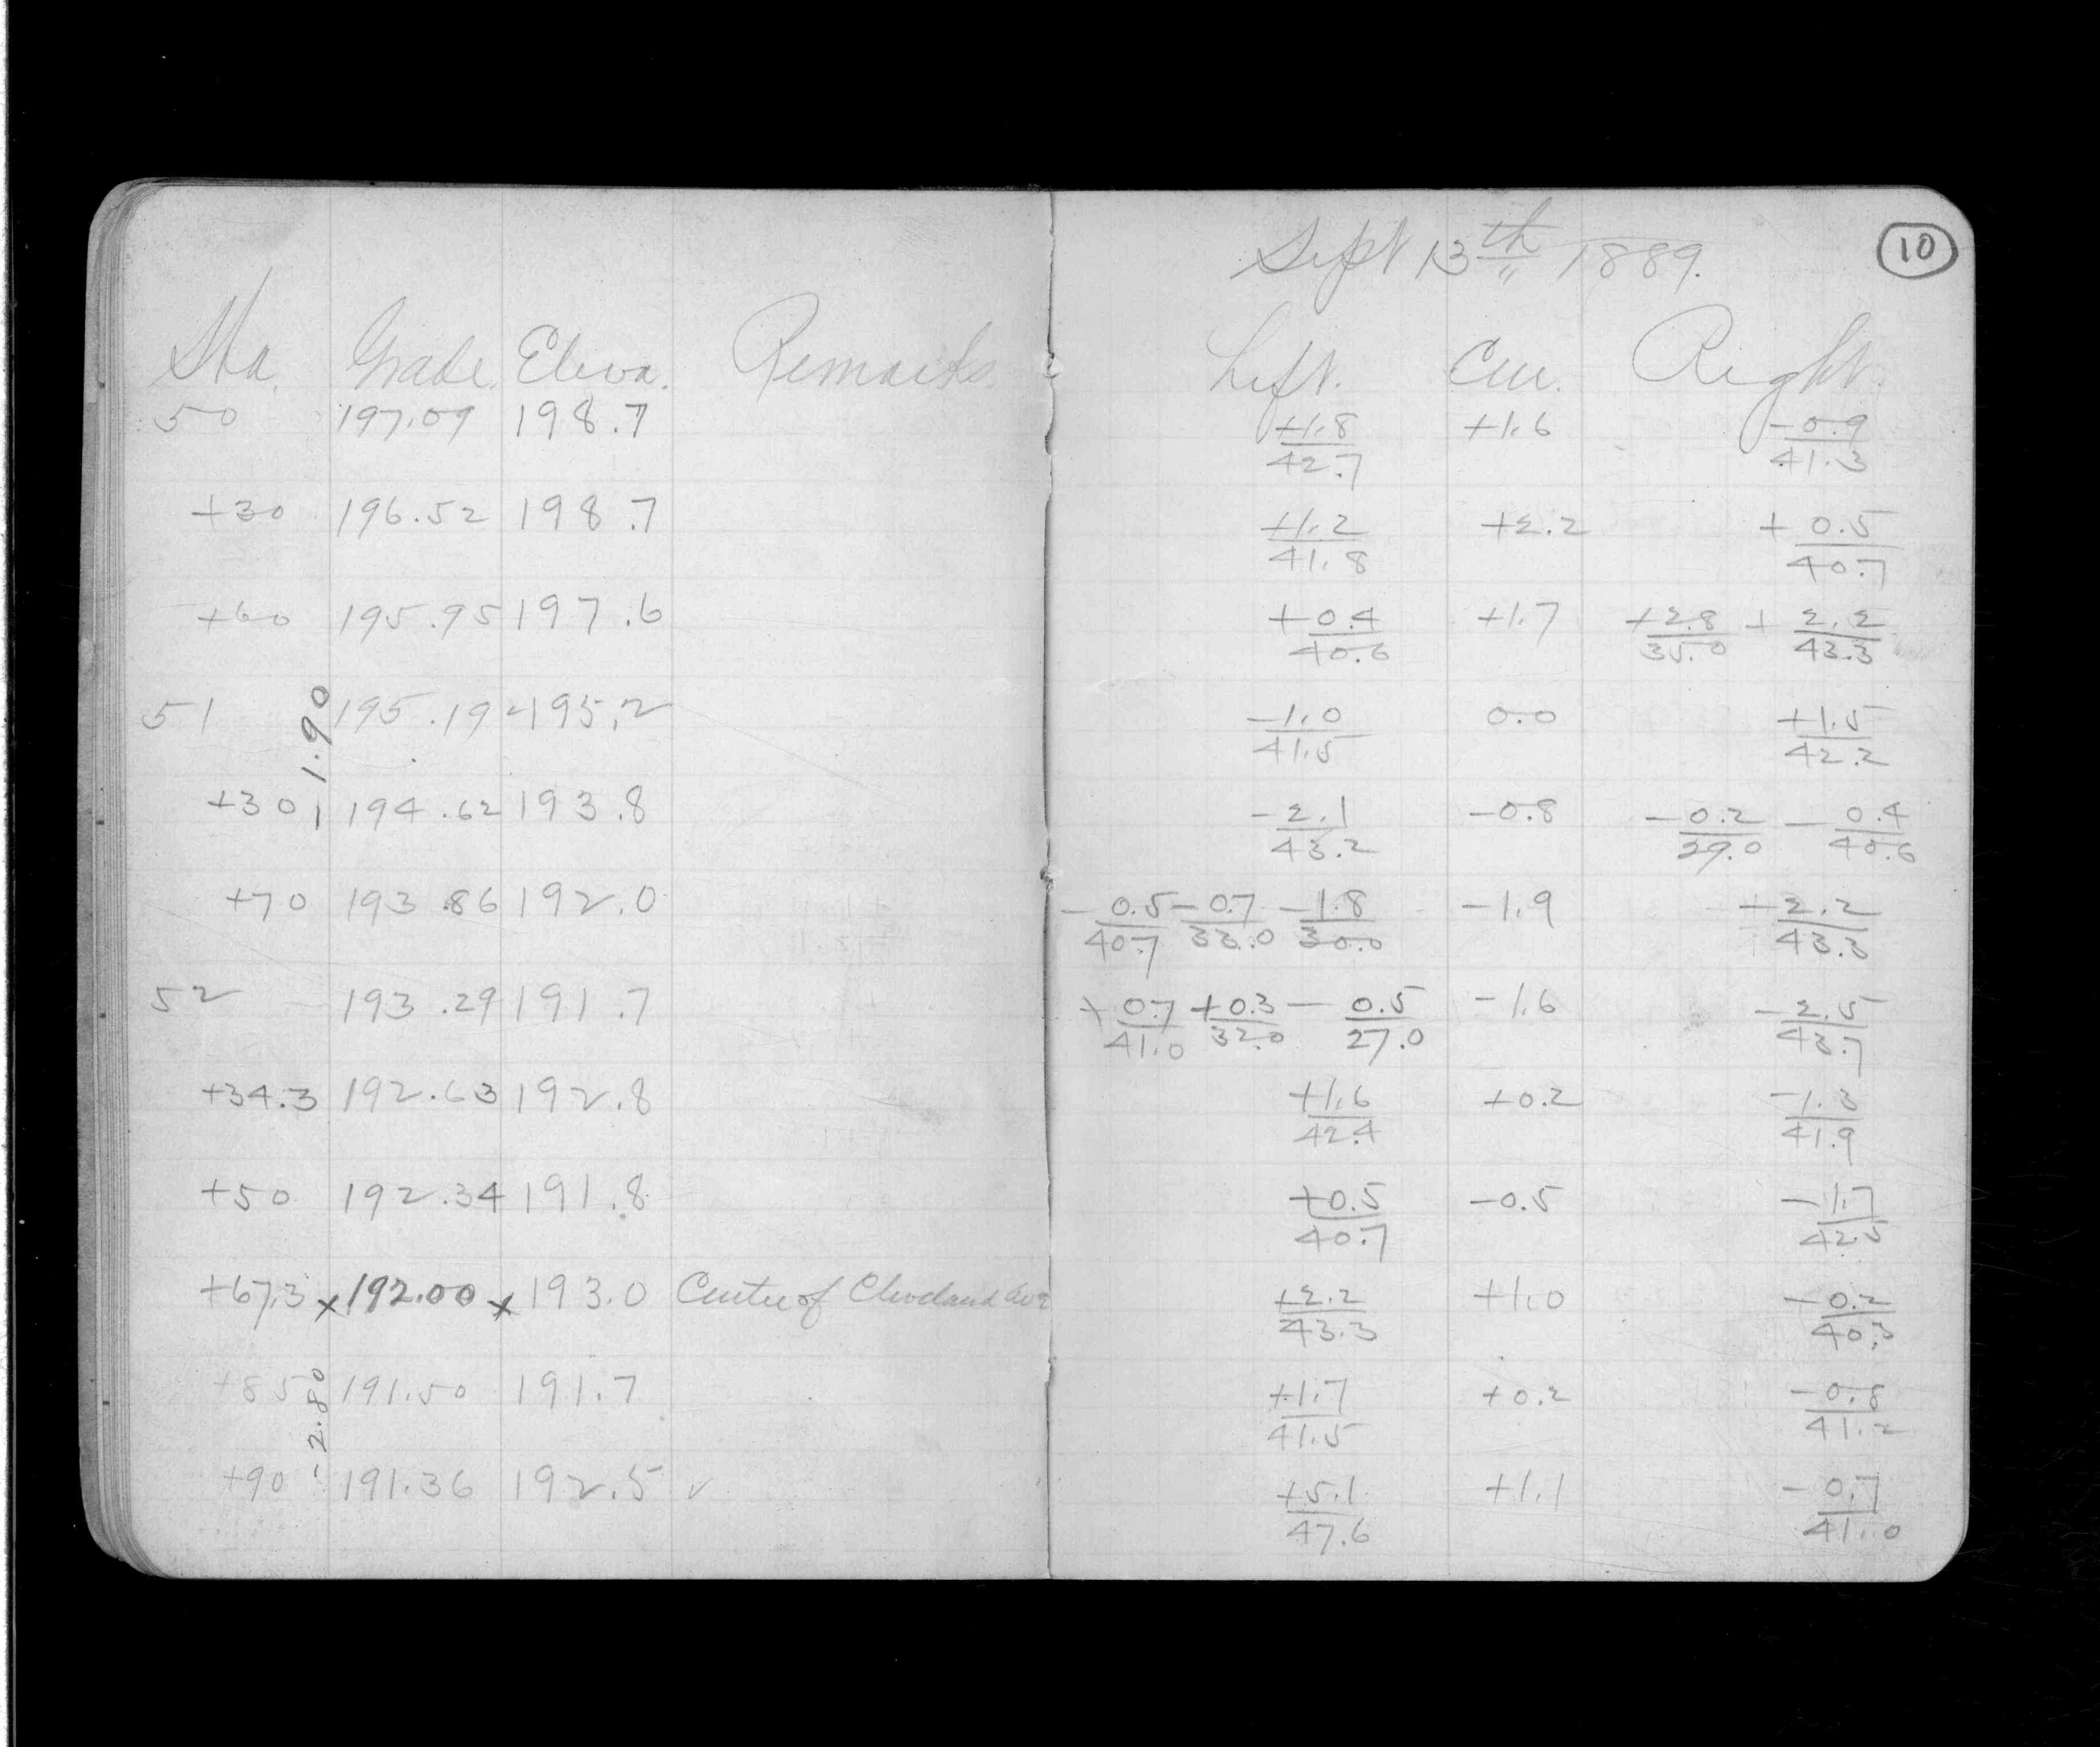 Sept 13th 1889. 10
Sta. Grade. Eleva. Remarks Left. Cen. Right.
50 197.09 198.7 +1.8/42.7 +1.6 -0.9/41.3
+30 196.52 198.7 +1.2/41.8 +2.2 +0.5/40.7
+60 195.95 197.6 +0.4/40.6 +1.7 +2.8/35.0 +2.2/43.3
51 195.19 195.2 -1.0/41.5 0.0 +1.5/42.2
1.90
+30 194.62 193.8 -2.1/43.2 -0.8 -0.2/29.0 -0.4/40.6
+70 193.86 192.0 -0.5/40.7 -0.7/33.0 -1.8/30.0 -1.9 -2.2/43.3
52 193.29 191.7 +0.7/41.0 +0.3/32.0 -0.5/27.0 -1.6 -2.5/43.7
+34.3 192.63 192.8 +1.6/42.4 +0.2 -1.3/41.9
+50 192.34 191.8 +0.5/40.7 -0.5 -1.7/42.5
+67.3 x 192.00 x 193.0 Centre of Cleveland Ave +2.2/43.3 +1.0 -0.2/40.3
+85 191.50 191.7 +1.7/41.5 +0.2 -0.8/41.2
2.80
+90 191.36 192.5 ✓ +5.1/47.6 +1.1 -0.7/41.0